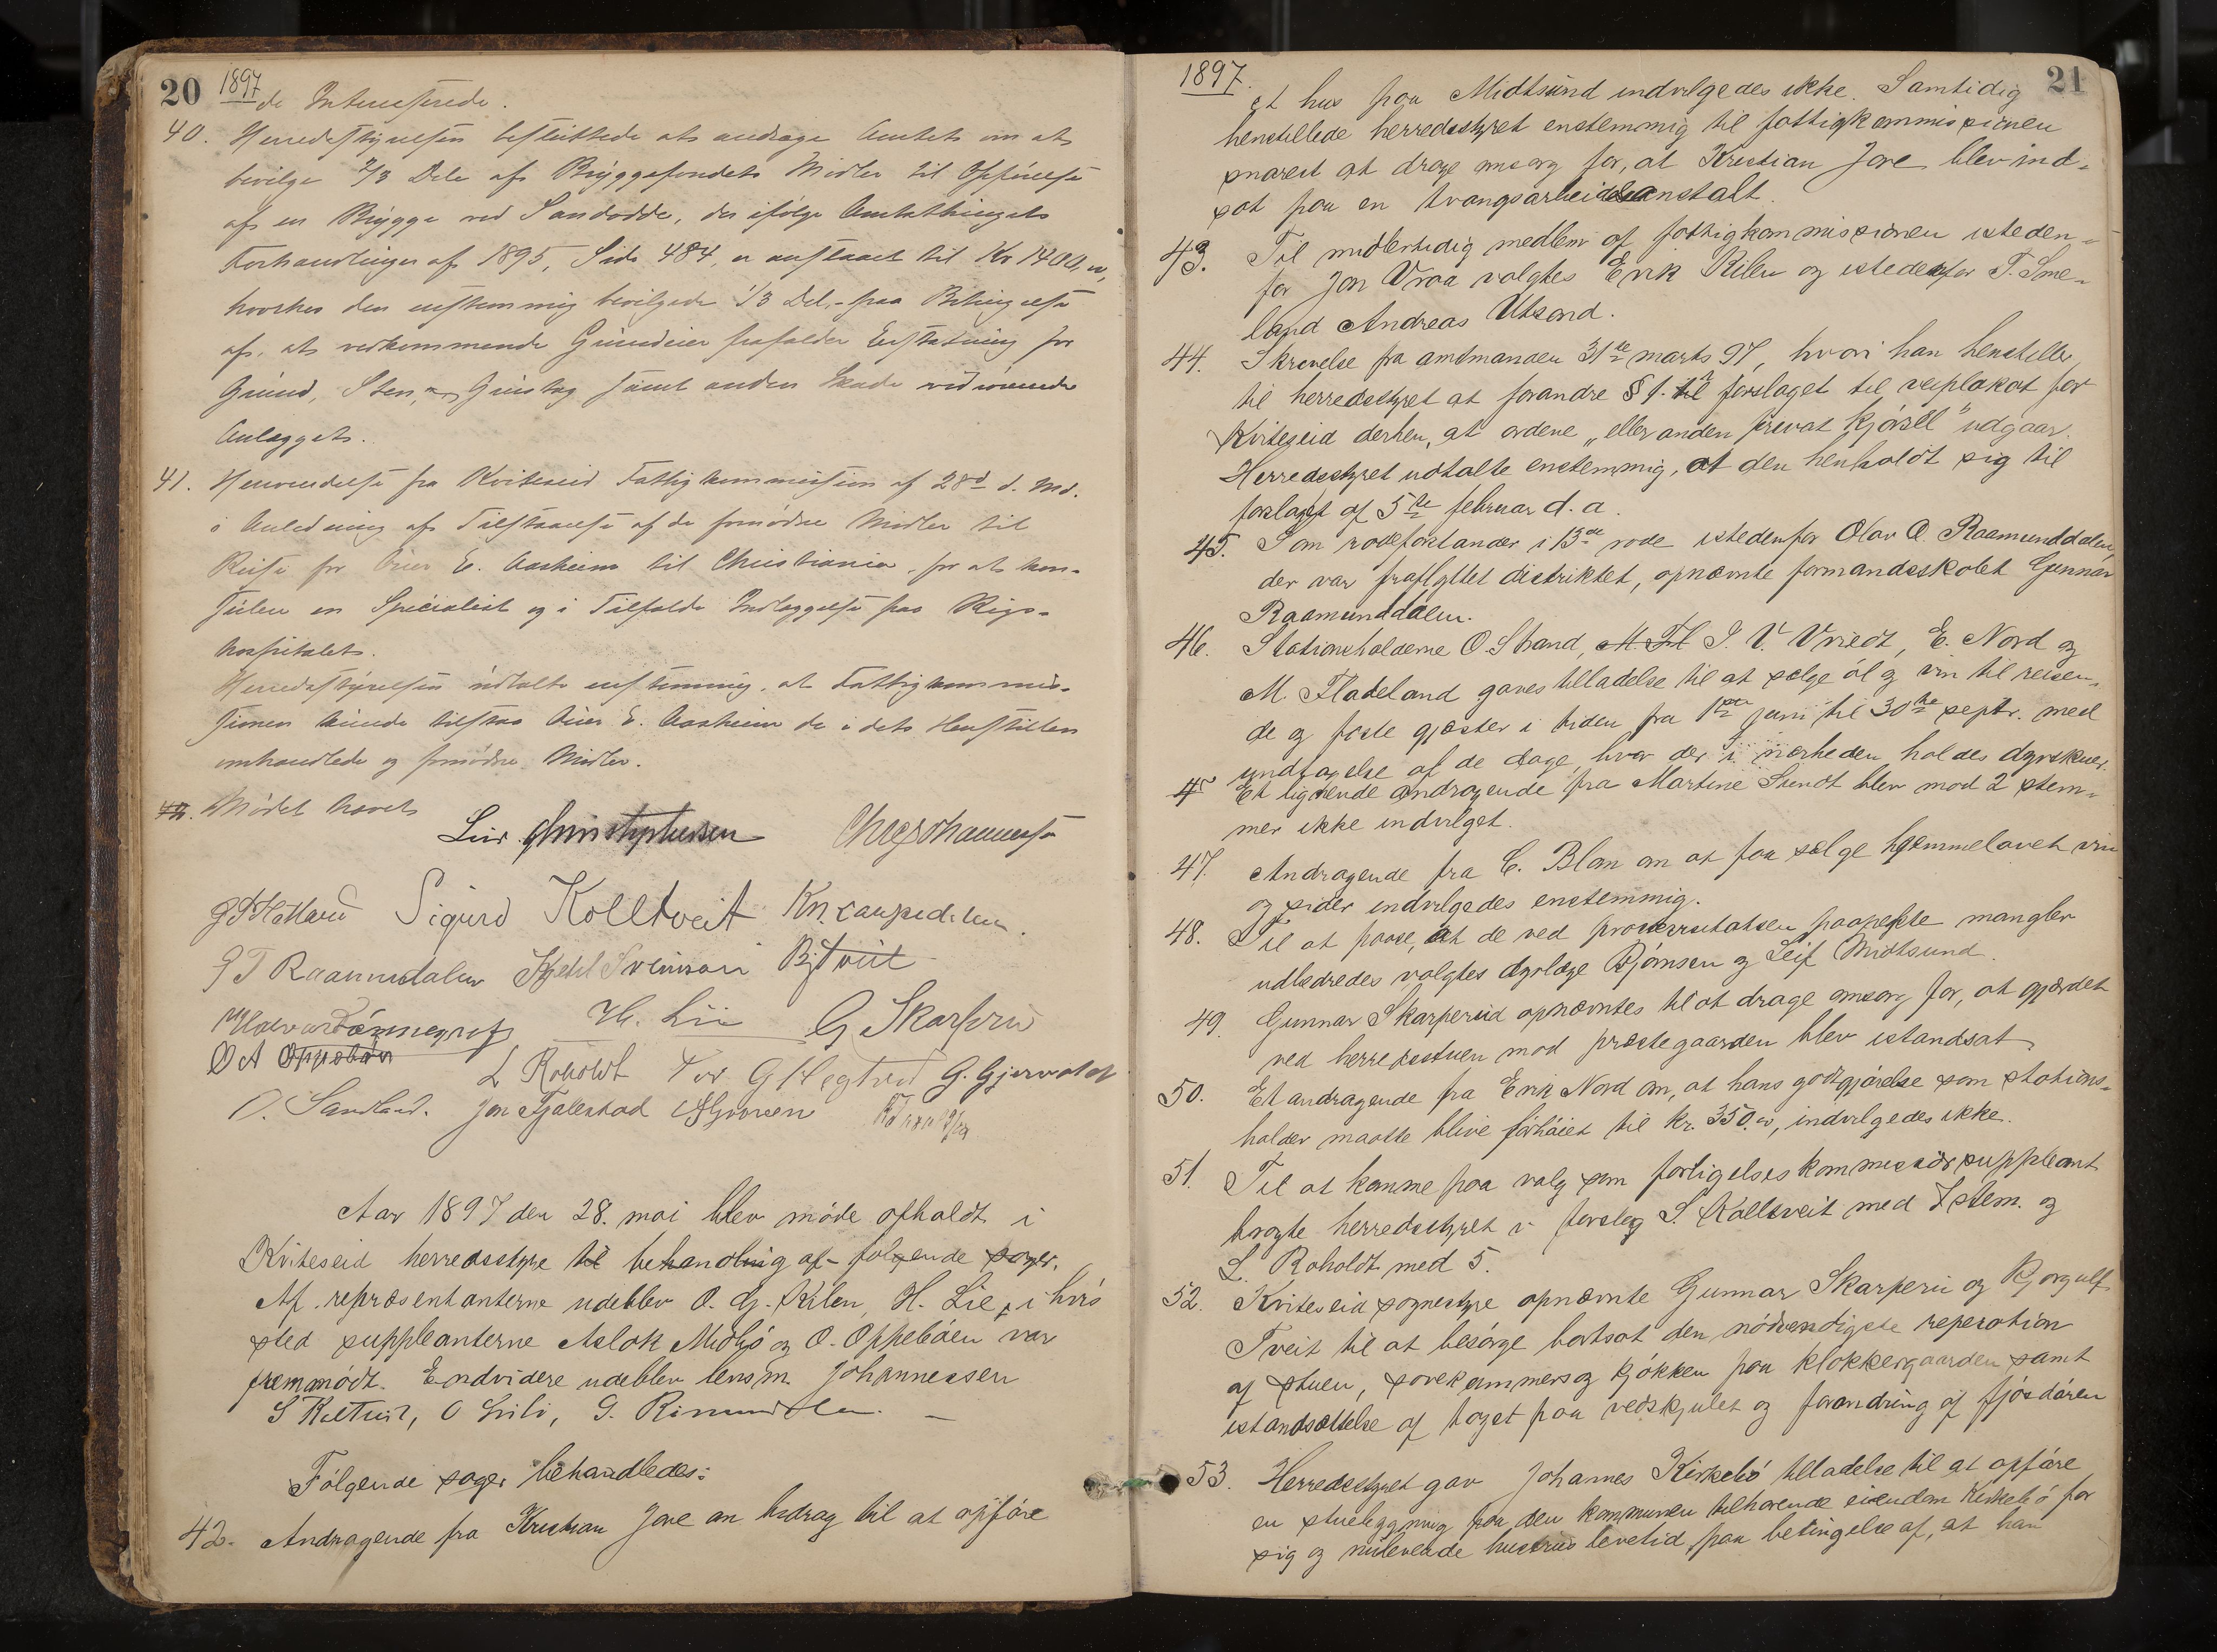 20 1897
de Interesserede.
40. Herredsstyrelsen besluttede at andrage Amtet om at
bevilge 2/3 Dele af Bryggefondets Midler til Opførelse
af en Brygge ved Sandodde, der ifølge Amtsthingets
Forhandlinger af 1895, Side 484, er anslaaet til Kr
hvorhos den enstemmig bevilgede 1/3 Del - paa Betingelse
af, at vedkommende Grundeier frafalder Erstatning for
Grund, Sten, og Grustag samt anden Skade vedrørende
Anlægget.
41. Henvendelse fra Kviteseid Fattigkommission af 28d d. Md.
i Anledning af Tilstaaelse af de fornødne Midler til
Reise for E. Aasheim til Christiania, for at kon-
sulere en Specialist og i Tilfælde Indlæggelse paa Rigs-
hospitalet.
Herredsstyrelsen udtalte enstemmig, at Fattigkommis-
sionen kunde tilstaa E. Aasheim de i dets Henstillen
omhandlede og fornødne Midler.
42. Mødet hævet
Christophersen
Sigurd Kolltveit
Kjetil Sveinson
H. Lie G Skarprud
L Roholdt G. Gjervoldt
O. Sandland. Jon Fjalestad
Aar 1897 den 28. mai blev møde afholdt i
Kviteseid herredsstyre til behandling af følgende sager.
Af repræsentanterne udeblev O. G. Kilen, H. Lie, i hvis
sted suppleanterne Aslak Midbø og O. Oppebøen var
fremmødt. Endvidere udeblev lensm. Johannessen
Følgende sager behandledes:
42. Andragende fra Kristian Jore om bidrag til at opføre
1897. 21
et hus paa Midtsund indvilgedes ikke. Samtidig
henstillede herredsstyret enstemmig til fattigkommissionen
snarest at drage omsorg for, at Kristian Jore blev ind-
sat paa en tvangsarbeidsanstalt.
43. Til midlertidig medlem af fattigkommissionen isteden-
for Jon Vraa valgtes Erik Kilen og istedenfor T. Sme-
land Andreas Utsond.
44. Skrivelse fra amtmanden 31te marts 97, hvori han henstiller
til herredsstyret at forandre § 1. til forslaget til veiplakat for
Kviteseid derhen, at ordene „eller anden privat kjørsel" udgaar.
Herredsstyret udtalte enstemmig, at den henholdt sig til
forslaget af 5te februar d. a.
45. Som rodeforstander i 13de rode istedenfor Olav O. Raamunddalen,
der var fraflyttet distriktet, opnævnte formandsskabet Gunnar
Raamunddalen.
46. Stationsholderne O. Strand, M. Fl J. V. Vriedt, E. Nord og
M. Fladeland gaves tilladelse til at sælge øl og vin til reisen-
de og faste gjæster i tiden fra 1ste juni til 30te septr. med
undtagelse af de dage, hvor der i nærheden holdes dyrskuer.
Et lignende andragende fra Martine Sundt blev mod 2 stem-
mer ikke indvilget.
47. Andragende fra C. Blom om at faa sælge hjemmelavet vin
og sider indvilgedes enstemmig.
48. Til at paase, at de ved paapekte mangler
udbedredes valgtes dyrlæge Bjørnsen og Leif Midtsund.
49. Gunnar Skarperud opnævntes til at drage omsorg for, at gjærdet
ved herredsstuen mod præstegaarden blev istandsat.
50. Et andragende fra Erik Nord om, at hans godtgjørelse som stations-
holder maatte blive forhøiet til kr. 350.00, indvilgedes ikke.
51. Til at komme paa valg som forligelseskommissørsuppleant
bragte herredsstyret i forslag S. Kolltveit med 7 stem. og
L. Roholdt med 5.
52. Kviteseid sognestyre opnævnte Gunnar Skarperu og Bjørgulf
Tveit til at besørge bortsat den nødvendigste reperation
af stuen, sovekammers og kjøkken paa klokkergaarden samt
istandsættelse af taget paa vedskjulet og forandring af fjøsdøren
53. Herredsstyret gav Johannes Kirkebø tilladelse til at opføre
en stuebygning paa den kommunen tilhørende eiendom Kirkebø for
sig og nulevende hustrus levetid paa betingelse af, at han